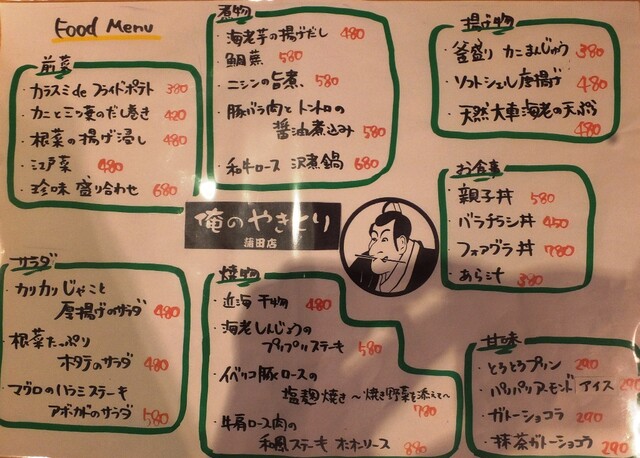 Food Menu
前菜
・カラスミde フライドポテト 380
・カニと三つ葉のだし巻き 420
・根菜の揚げ浸し 480
・江戸菜 480
・珍味 盛り合わせ 680
煮物
・海老芋の揚げだし 480
・鯛蕪 580
・ニシンの旨煮、 580
・豚バラ肉と トントロの
醤油煮込み 580
・和牛ロース 沢煮鍋 680
揚げ物
・釜盛り カニまんじゅう 380
・ソフトシェル唐揚げ 480
・天然大車海老の天ぷら
480
お食事
・親子丼 580
・バラチラシ丼 450
・フォアグラ丼 780
・あら汁 380
俺のやきとり
蒲田店
サラダ
・カリカリじゃこと
厚揚げのサラダ 480
・根菜たっぷり
ホタテのサラダ 480
・マグロのハラミステーキ
アボカドのサラダ 580
焼物
・近海 干物 480
・海老しんじょうの
プリプリステーキ 580
・イベリコ豚ロースの
塩麹焼き 〜焼き野菜を添えて〜
780
・牛肩ロース肉の
和風ステーキ ホホンソース 880
甘味
・とろとろプリン 290
・パリパリアーモンド アイス 290
・ガトーショコラ 290
・抹茶ガトーショコラ 290